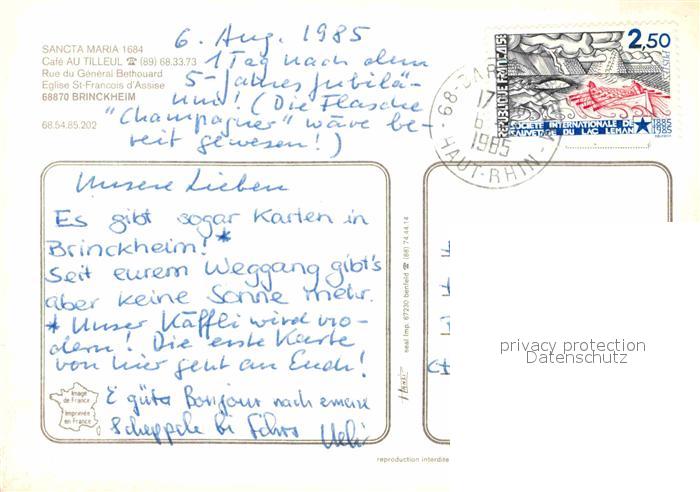 6. Aug. 1985
1 Tag nach dem
5-Jahresjubilä-
um! (Die Flasche
"Champagner" wäre be-
reit gewesen!)
SANCTA MARIA 1684
Café AU TILLEUL ☎ (89) 68.33.73
Rue du Général Bethouard
Eglise St-François d'Assise
68870 BRINCKHEIM
68.54.85.202
2,50
REPUBLIQUE FRANÇAISE
SOCIETE INTERNATIONALE DE
SAUVETAGE DU LAC LEMAN
1885
1985
68-
17
8
1985
HAUT-RHIN
Unsere Lieben
Es gibt sogar Karten in
Brinckheim!*
Seit eurem Weggang gibt's
aber keine Sonne mehr.
* Unser Käffli wird mo-
dern! Die erste Karte
von hier geht an Euch!
E güte Bonjour nach emene
Scheppele bi Ueli
Image
de France
Imprimée
en France
seal Imp. 67230 benfeld ☎ (88) 74.44.14
reproduction interdite
privacy protection
Datenschutz